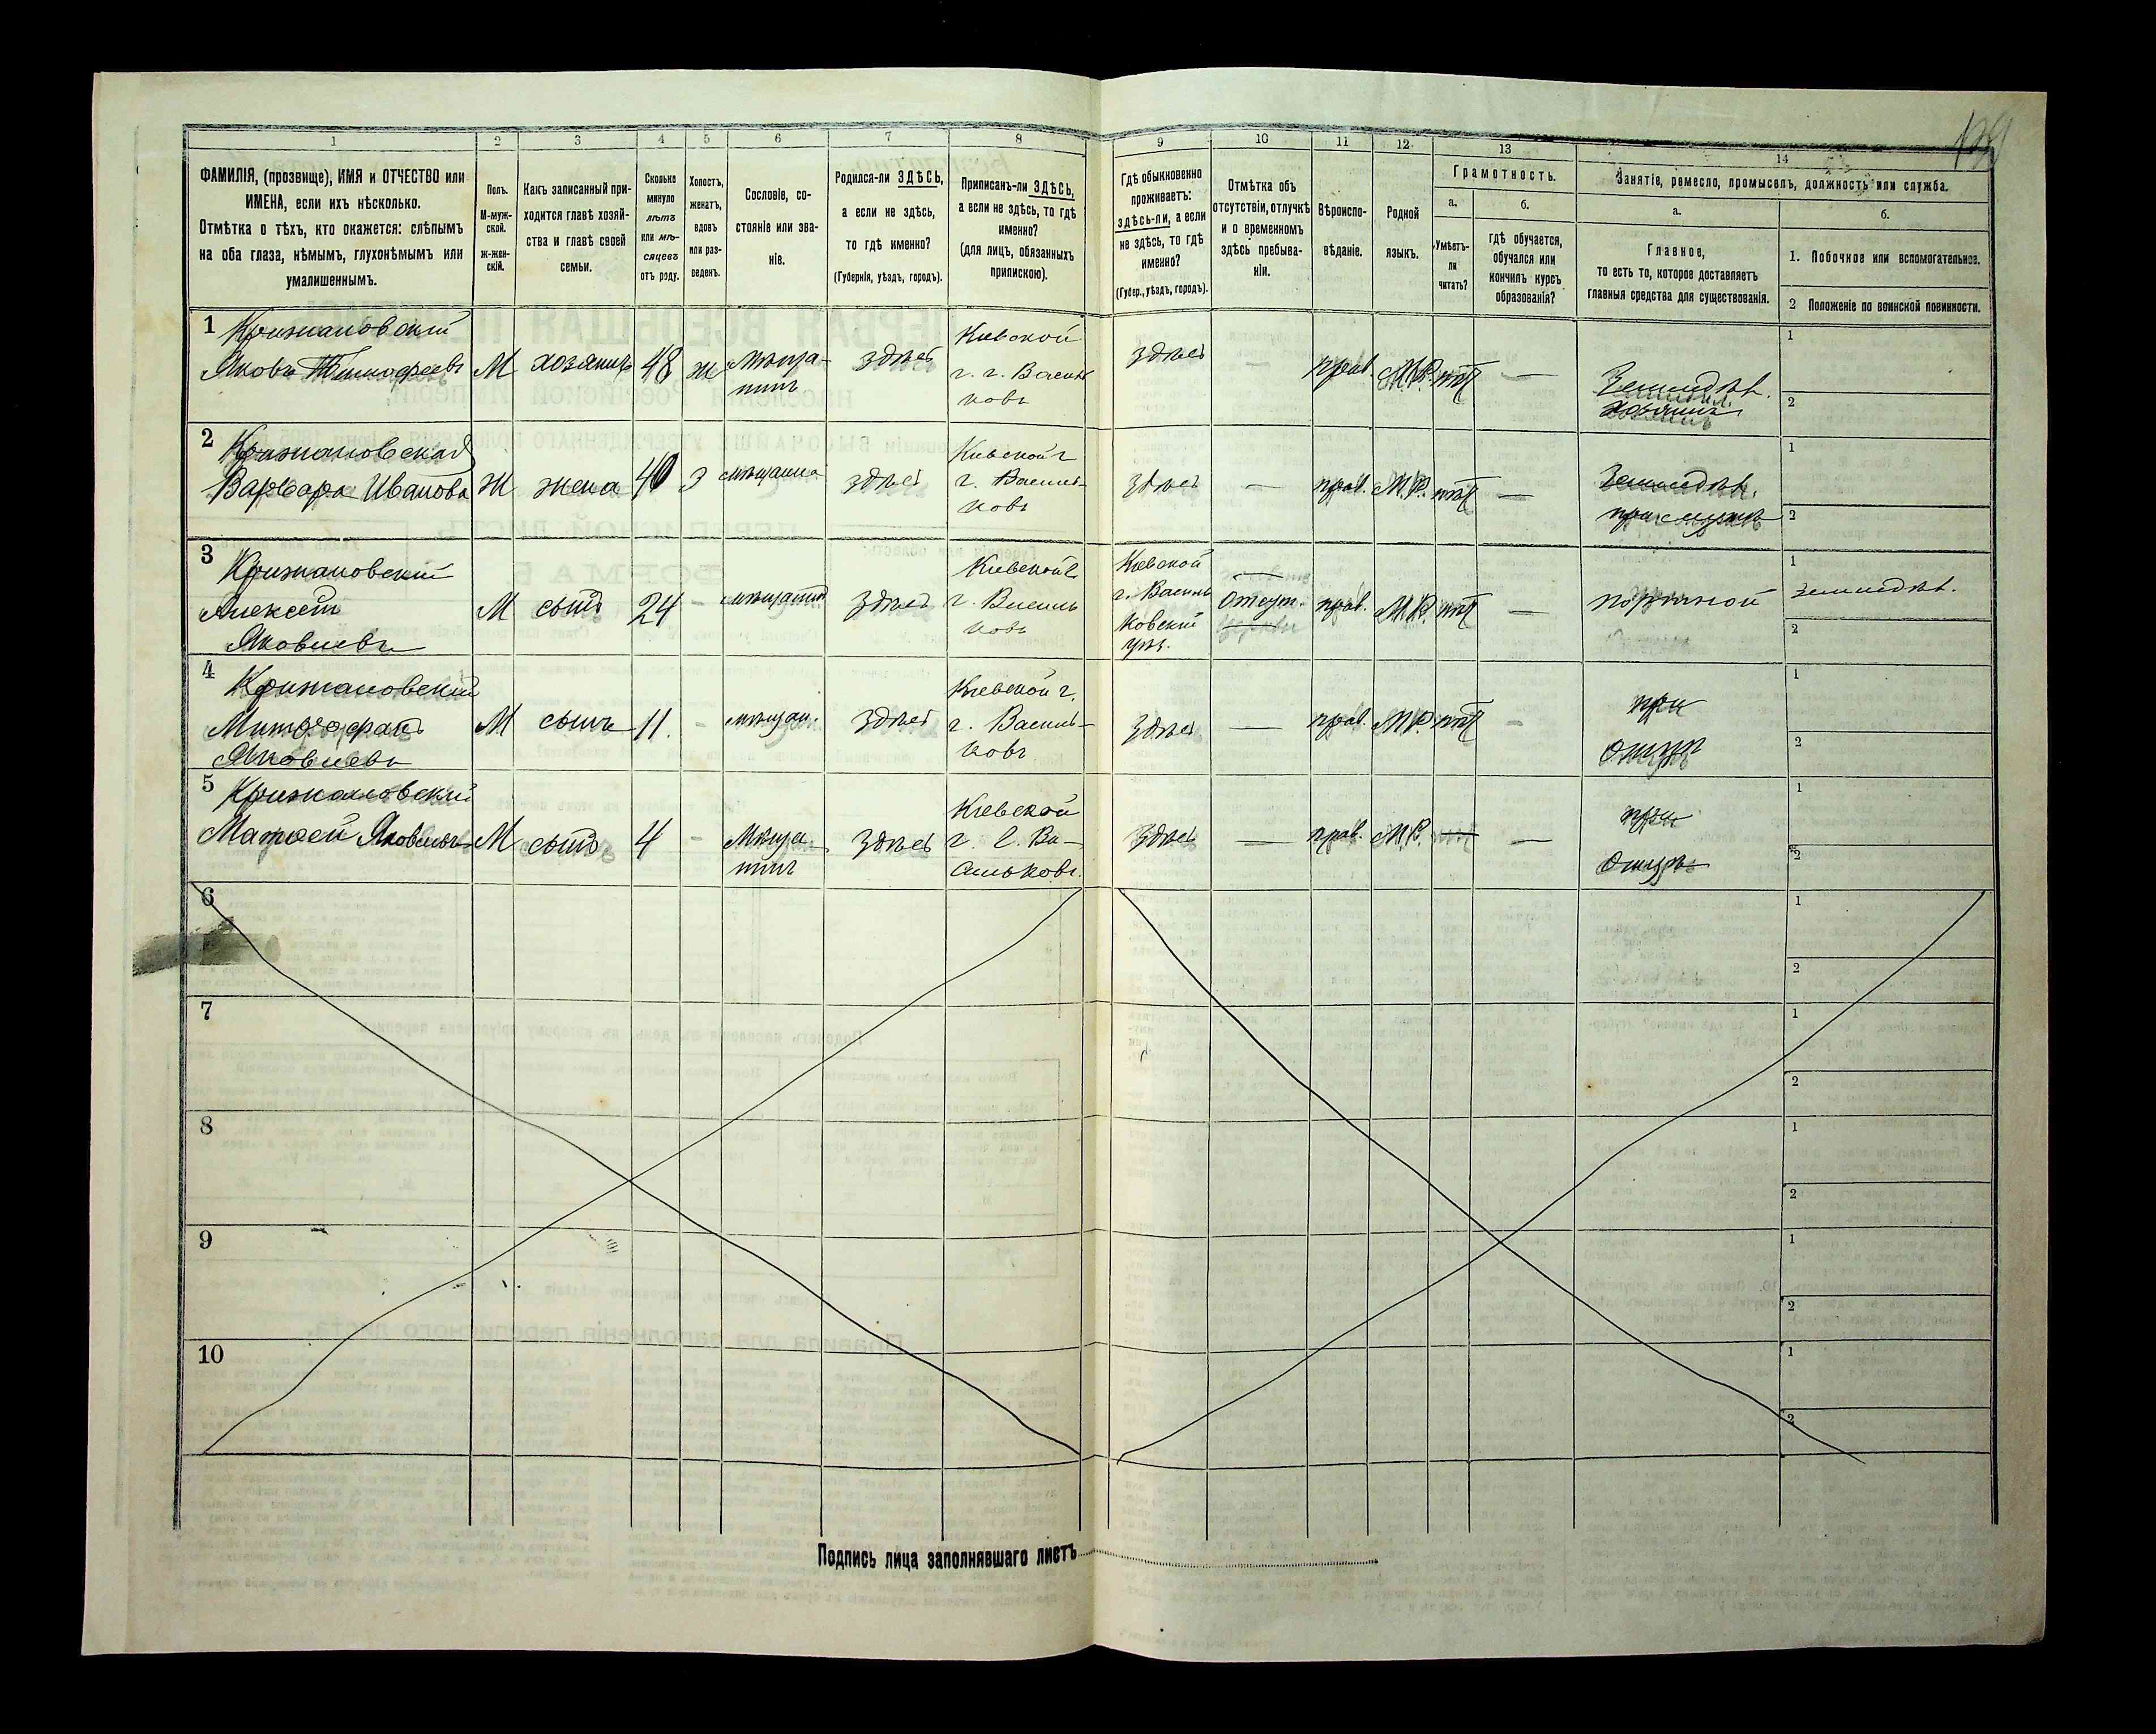 139
1 2 3 4 5 6 7 8 9 10 11 12 13 14
ФАМИЛІЯ, (прозвище), ИМЯ и ОТЧЕСТВО или
ИМЕНА, если ихъ нѣсколько.
Отмѣтка о тѣхъ, кто окажется: слѣпымъ
на оба глаза, нѣмымъ, глухонѣмымъ или
умалишеннымъ.
Полъ.
М-муж-
ской.
Ж-жен-
скій.
Какъ записанный при-
ходится главѣ хозяй-
ства и главѣ своей
семьи.
Сколько
минуло
лѣтъ
или мѣ-
сяцевъ
отъ роду.
Холостъ,
женатъ,
вдовъ
или раз-
веденъ.
Сословіе, со-
стояніе или зва-
ніе.
Родился-ли ЗДѢСЬ,
а если не здѣсь,
то гдѣ именно?
(Губернія, уѣздъ, городъ).
Приписанъ-ли ЗДѢСЬ,
а если не здѣсь, то гдѣ
именно?
(для лицъ, обязанныхъ
припискою).
Гдѣ обыкновенно
проживаетъ:
здѣсь-ли, а если
не здѣсь, то гдѣ
именно?
(Губер., уѣздъ, городъ).
Отмѣтка объ
отсутствіи, отлучкѣ
и о временномъ
здѣсь пребыва-
ніи.
Вѣроиспо-
вѣданіе.
Родной
языкъ.
Грамотность.
а.
Умѣетъ-
ли
читать?
б.
гдѣ обучается,
обучался или
кончилъ курсъ
образованія?
Занятіе, ремесло, промыселъ, должность или служба.
а.
Главное,
то есть то, которое доставляетъ
главныя средства для существованія.
б.
1. Побочное или вспомогательное.
2 Положеніе по воинской повинности.
1 Крижановскій
Яковъ Тимофеевъ
М
хозяинъ
48
ж
мѣща-
нинъ
здѣсь
Кіевской
г. г. Василь
ковъ
здѣсь
—
прав.
М.Р.
нѣт
—
Земледѣл.
хозяинъ
1
2
2 Крижановская
Варвара Иванова
Ж
жена
40
З
мѣщанка
здѣсь
Кіевской г
г. Василь-
ковъ
здѣсь
—
прав.
М.Р.
нѣт
—
Земледѣл.
при мужѣ
1
2
3 Крижановскій
Алексей
Яковлевъ
М
сынъ
24
-
мѣщанин
здѣсь
Кіевской г.
г. Василь
ковъ
Кіевской
г. Василь
ковскій
уѣз.
Отсут.
прав.
М.Р.
нѣт
—
портной
1
земледѣл.
2
4 Крижановскій
Митрофанъ
Яковлевъ
М
сынъ
11.
-
мѣщан.
здѣсь
Кіевской г.
г. Василь-
ковъ
здѣсь
—
прав.
М.Р.
нѣт
-
при
Отцѣ
1
2
5 Крижановскій
Матвей Яковлевъ
М
сынъ
4
-
Мѣща-
нинъ
здѣсь
Кіевской
г. г. Ва-
сильковъ.
здѣсь
—
прав.
М.Р.
—
при
Отцѣ
1
2
6
1
2
7
1
2
8
1
2
9
1
2
10
1
2
Подпись лица заполнявшаго листъ